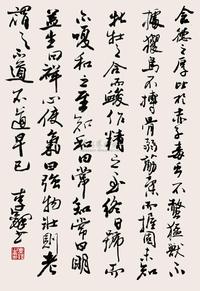 含德之厚比於赤子毒虫不螫猛獸不
據攫鳥不搏骨弱筋柔而握固未知
牝牡之合而朘作精之至終日號而
不嗄和之至知和曰常知常曰明
益生曰祥心使氣曰強物壯則老
謂之不道不道早已 李